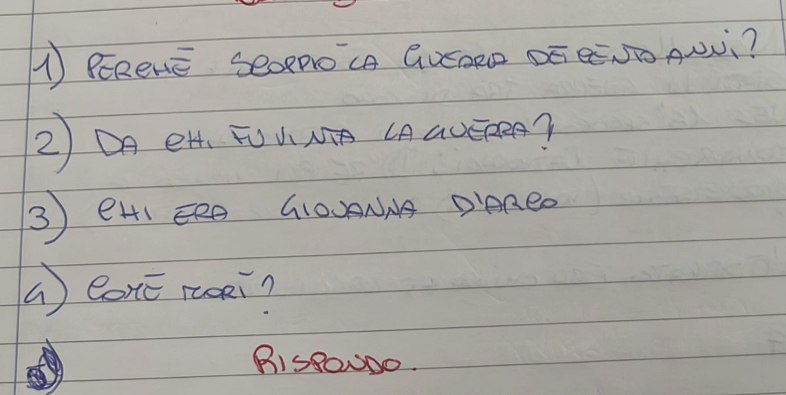 1) PERCHÈ SCOPPIÒ LA GUERRA DEI CENTO ANNI?
2) DA CHI FU VINTA LA GUERRA?
3) CHI ERA GIOVANNA D'ARCO
4) COM'È MORÌ?
RISPONDO.